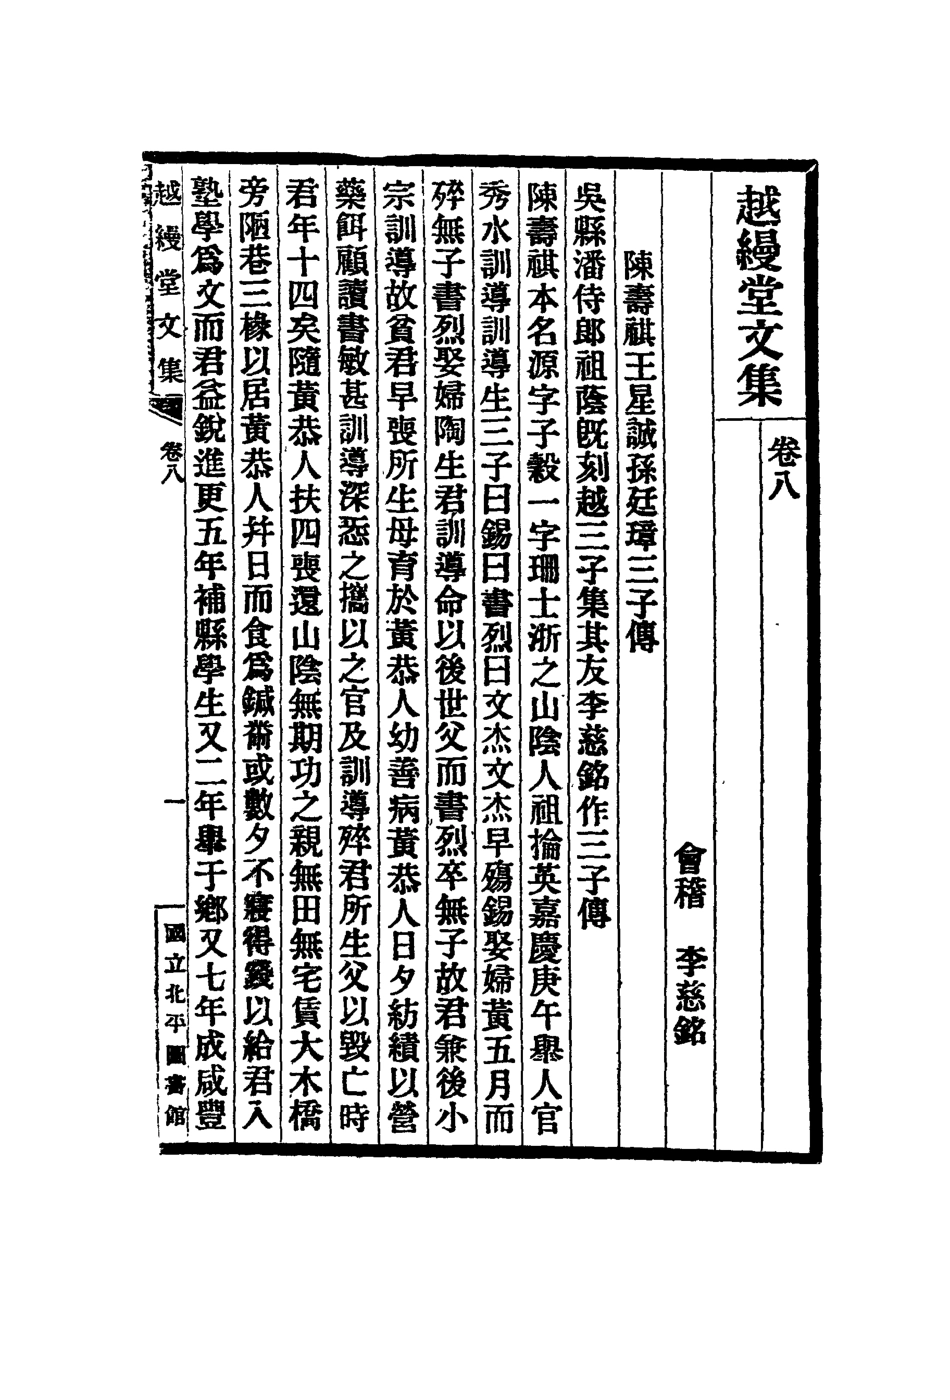 越縵堂文集
卷八
會稽　李慈銘
陳壽祺王星諴孫廷璋三子傳
吳縣潘侍郎祖蔭既刻越三子集其友李慈銘作三子傳
陳壽祺本名源字子穀一字珊士浙之山陰人祖掄英嘉慶庚午舉人官
秀水訓導訓導生三子曰錫曰書烈曰文杰文杰早殤錫娶婦黃五月而
殚無子書烈娶婦陶生君訓導命以後世父而書烈卒無子故君兼後小
宗訓導故貧君早喪所生母育於黃恭人幼善病黃恭人日夕紡績以營
藥餌顧讀書敏甚訓導深恧之攜以之官及訓導殚君所生父以毀亡時
君年十四矣隨黃恭人扶四喪還山陰無期功之親無田無宅賃大木橋
旁陋巷三椽以居黃恭人幷日而食爲鍼黹或數夕不寢得錢以給君入
塾學爲文而君益銳進更五年補縣學生又二年舉于鄉又七年成咸豐
越縵堂文集
卷八
一
國立北平圖書館